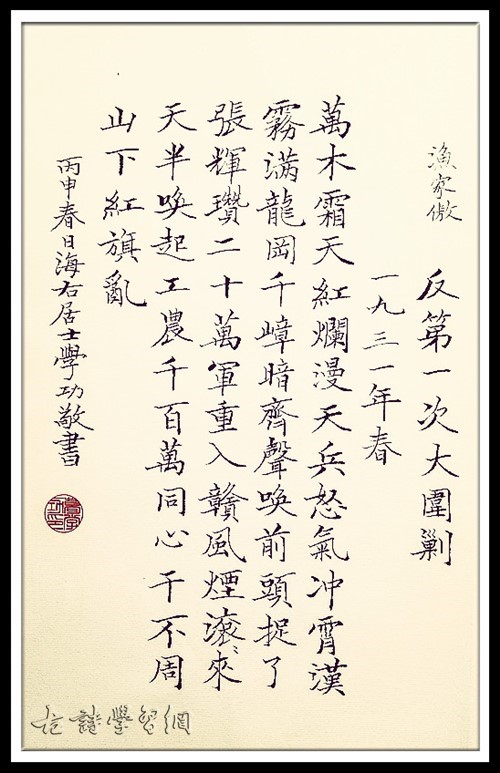 漁家傲
反第一次大圍剿
一九三一年春
萬木霜天紅爛漫天兵怒氣冲霄漢
霧满龍岡千嶂暗齊聲唤前頭捉了
張輝瓚二十萬軍重入贛風煙滚〻來
天半唤起工農千百萬同心干不周
山下紅旗亂
丙申春日海右居士學功敬書
學習網